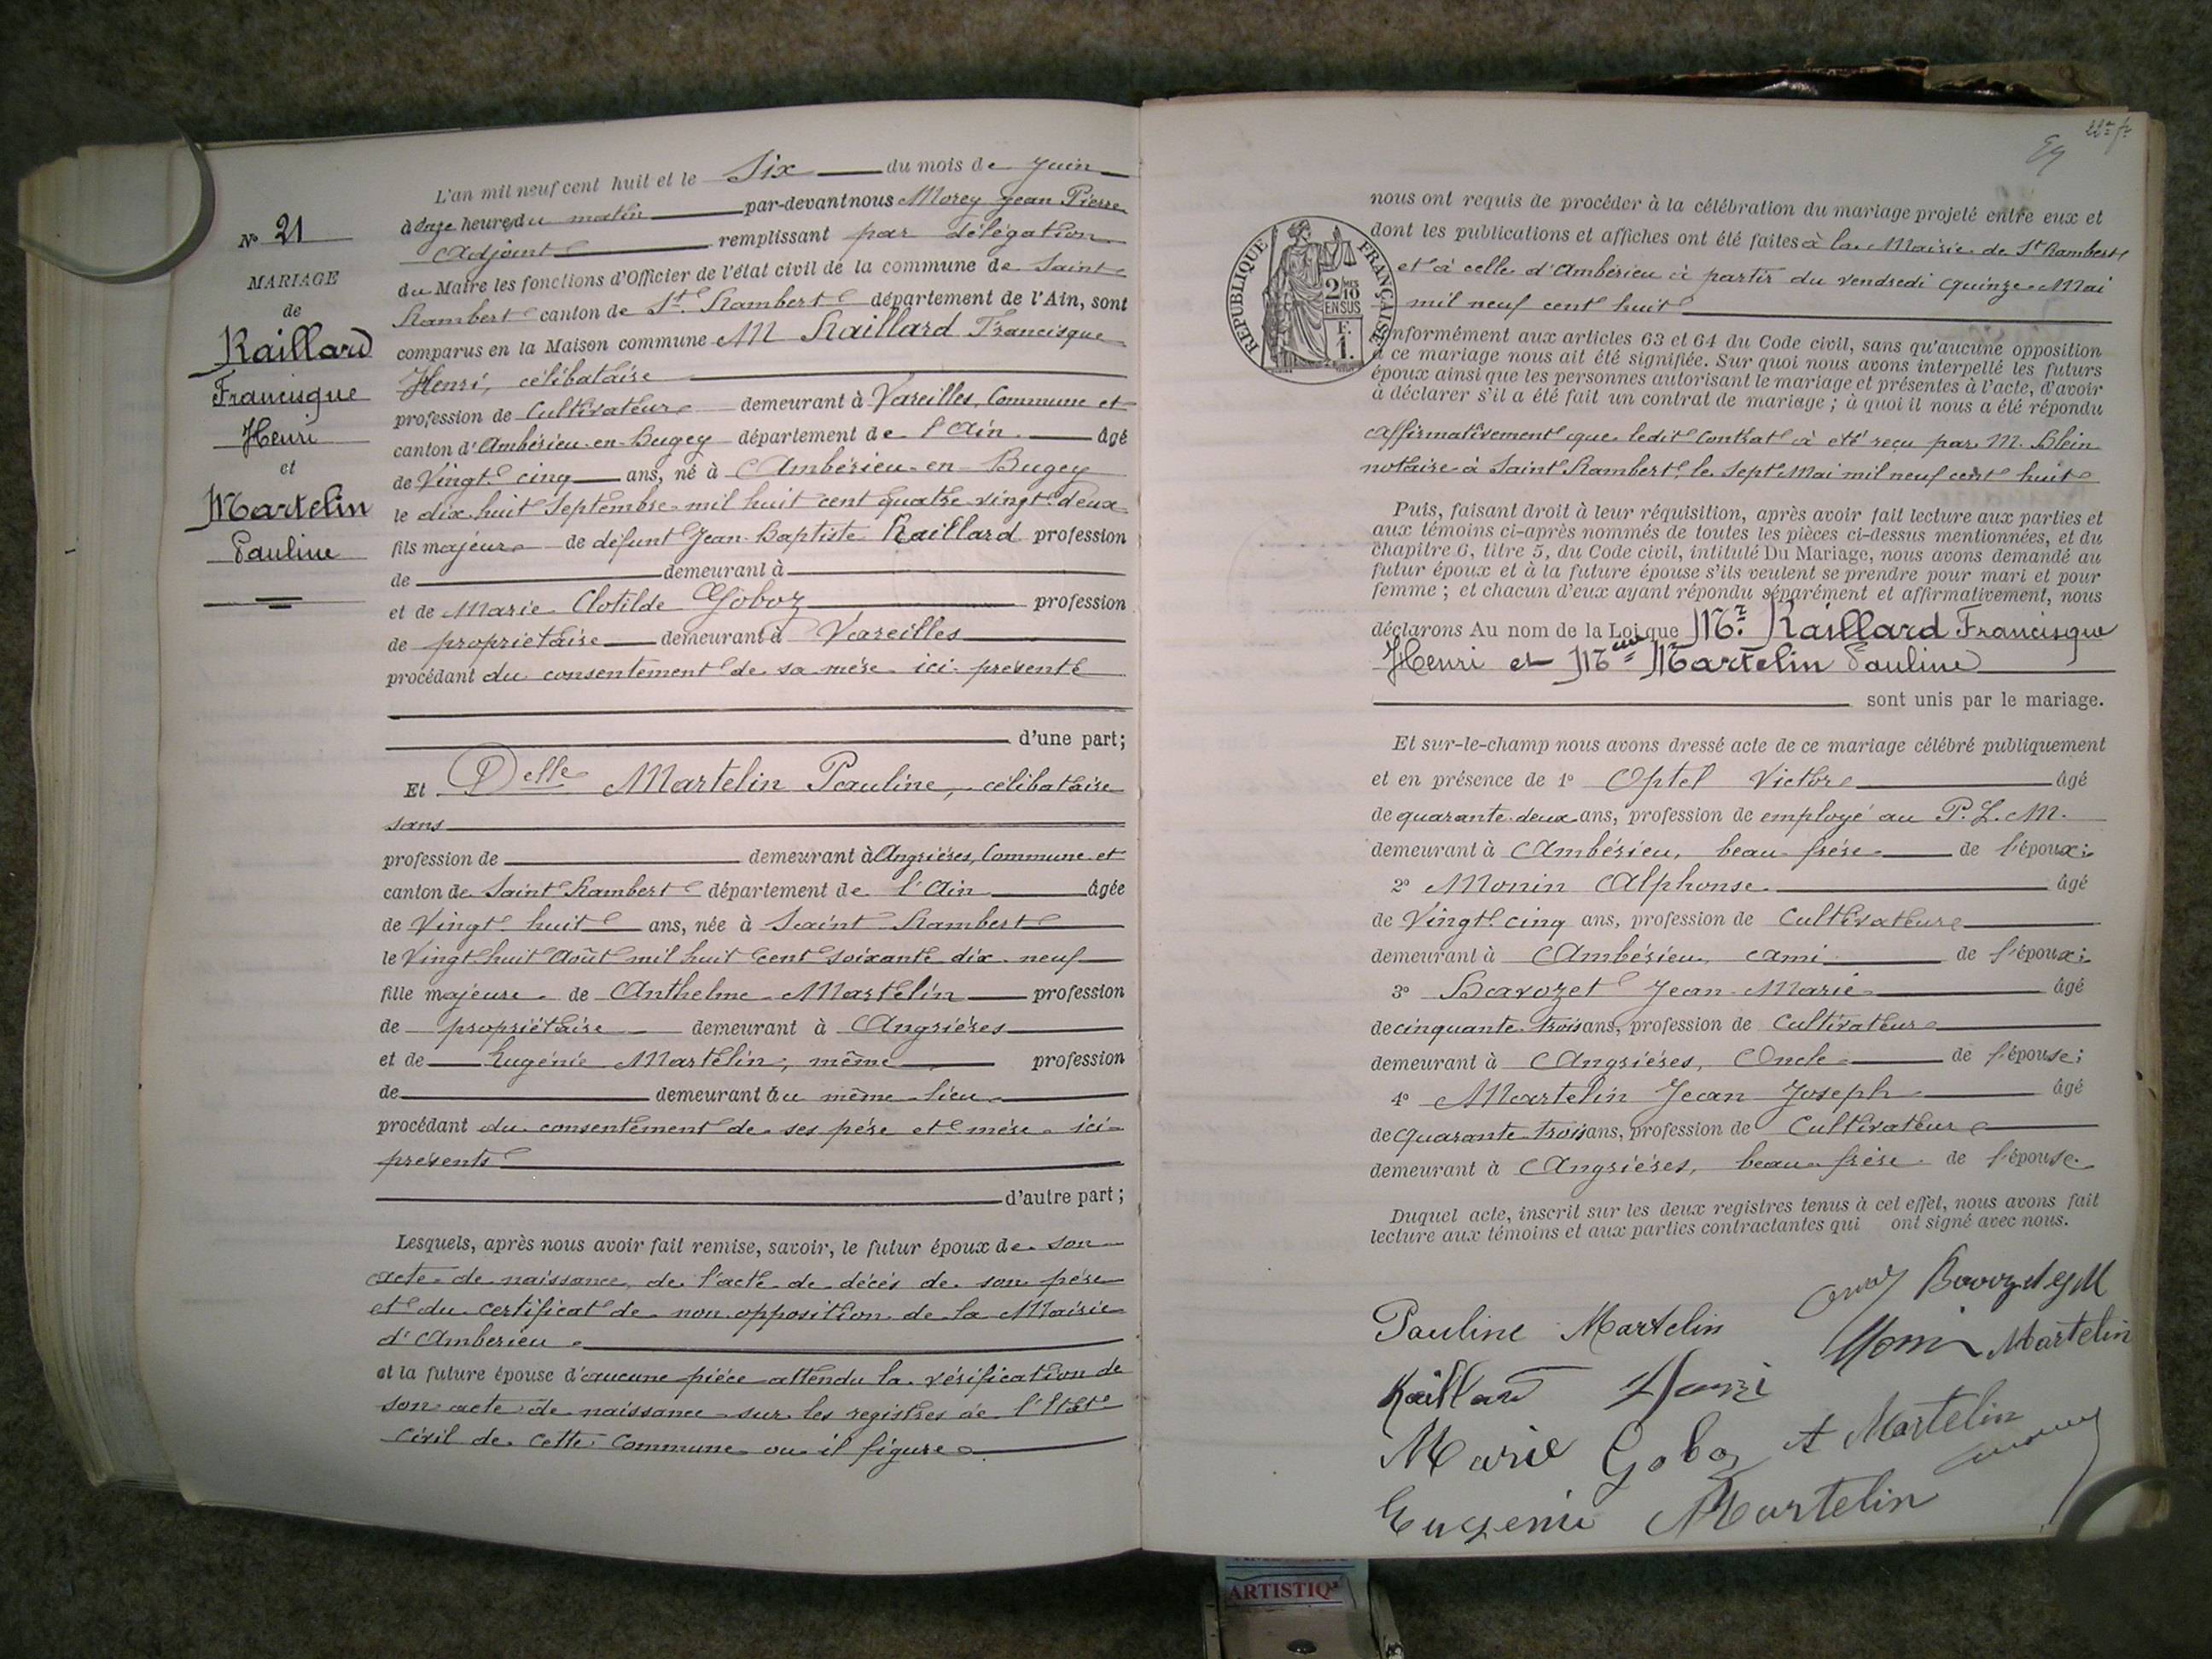 N° 21
MARIAGE
de
Raillard
Francisque
Henri
et
Martelin
Pauline
L'an mil neuf cent huit et le Six du mois de Juin
à onze heures du matin par-devant nous Morey Jean Pierre
Adjoint remplissant par délégation
du Maire les fonctions d'Officier de l'état civil de la commune de Saint
Rambert canton de St Rambert département de l'Ain, sont
comparus en la Maison commune M Raillard Francisque
Henri, célibataire
profession de Cultivateur demeurant à Vareilles, Commune et
canton d'Ambérieu-en-Bugey département de l'Ain âgé
de Vingt cinq ans, né à Ambérieu-en-Bugey
le dix huit Septembre mil huit cent quatre vingt deux
fils majeur de défunt Jean Baptiste Raillard profession
de demeurant à
et de Marie Clotilde Goboz profession
de propriétaire demeurant à Vareilles
procédant du consentement de sa mère ici présente
d'une part;
Et Delle Martelin Pauline, célibataire
sans
profession de demeurant à Angrières, Commune et
canton de Saint Rambert département de l'Ain âgée
de Vingt huit ans, née à Saint Rambert
le Vingt huit Août mil huit cent soixante dix neuf
fille majeure de Anthelme Martelin profession
de propriétaire demeurant à Angrières
et de Eugénie Martelin, même profession
de demeurant au même lieu
procédant du consentement de ses père et mère ici
présents
d'autre part;
Lesquels, après nous avoir fait remise, savoir, le futur époux de son
acte de naissance, de l'acte de décès de son père
et du certificat de non opposition de la Mairie
d'Amberieu
et la future épouse d'aucune pièce attendu la vérification de
son acte de naissance sur les registres de l'Etat
Civil de cette Commune ou il figure
22e ft
nous ont requis de procéder à la célébration du mariage projeté entre eux et
dont les publications et affiches ont été faites à la Mairie de St Rambert
et à celle d'Ambérieu à partir du vendredi quinze Mai
mil neuf cent huit
RÉPUBLIQUE FRANÇAISE
2/10
EN SUS
F.
1.
onformément aux articles 63 et 64 du Code civil, sans qu'aucune opposition
à ce mariage nous ait été signifiée. Sur quoi nous avons interpellé les futurs
époux ainsi que les personnes autorisant le mariage et présentes à l'acte, d'avoir
à déclarer s'il a été fait un contrat de mariage; à quoi il nous a été répondu
affirmativement que ledit contrat à été reçu par M. Blein
notaire à Saint Rambert, le sept Mai mil neuf cent huit
Puis, faisant droit à leur réquisition, après avoir fait lecture aux parties et
aux témoins ci-après nommés de toutes les pièces ci-dessus mentionnées, et du
chapitre 6, titre 5, du Code civil, intitulé Du Mariage, nous avons demandé au
futur époux et à la future épouse s'ils veulent se prendre pour mari et pour
femme; et chacun d'eux ayant répondu séparément et affirmativement, nous
déclarons Au nom de la Loi que Mr. Raillard Francisque
Henri et Melle Martelin Pauline
sont unis par le mariage.
Et sur-le-champ nous avons dressé acte de ce mariage célébré publiquement
et en présence de 1° Optel Victor âgé
de quarante deux ans, profession de employé au P. L. M.
demeurant à Ambérieu, beau frère de l'époux;
2° Monin Alphonse âgé
de Vingt cinq ans, profession de Cultivateur
demeurant à Ambérieu, ami de l'époux;
3° Bavozet Jean Marie âgé
de cinquante trois ans, profession de Cultivateur
demeurant à Angrières, Oncle de l'épouse;
4° Martelin Jean Joseph âgé
de quarante trois ans, profession de Cultivateur
demeurant à Angrières, beau frère de l'épouse
Duquel acte, inscrit sur les deux registres tenus à cet effet, nous avons fait
lecture aux témoins et aux parties contractantes qui ont signé avec nous.
Pauline Martelin
Monin Martelin
Raillard Henri
Marie Goboz A Martelin
Eugenie Martelin
ARTISTIQ